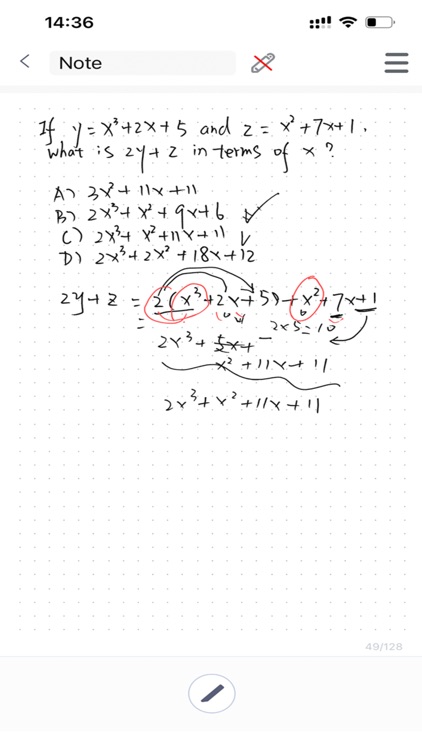 14:36
Note
If y = x³+2x+5 and z = x²+7x+1.
What is 2y+z in terms of x?
A) 3x²+11x+11
B) 2x³+x²+9x+6
C) 2x³+x²+11x+11
D) 2x³+2x²+18x+12
2y+z = 2(x³+2x+5)+x²+7x+1
= 2x5=10
2x³+
x²+11x+11
2x³+x²+11x+11
49/128